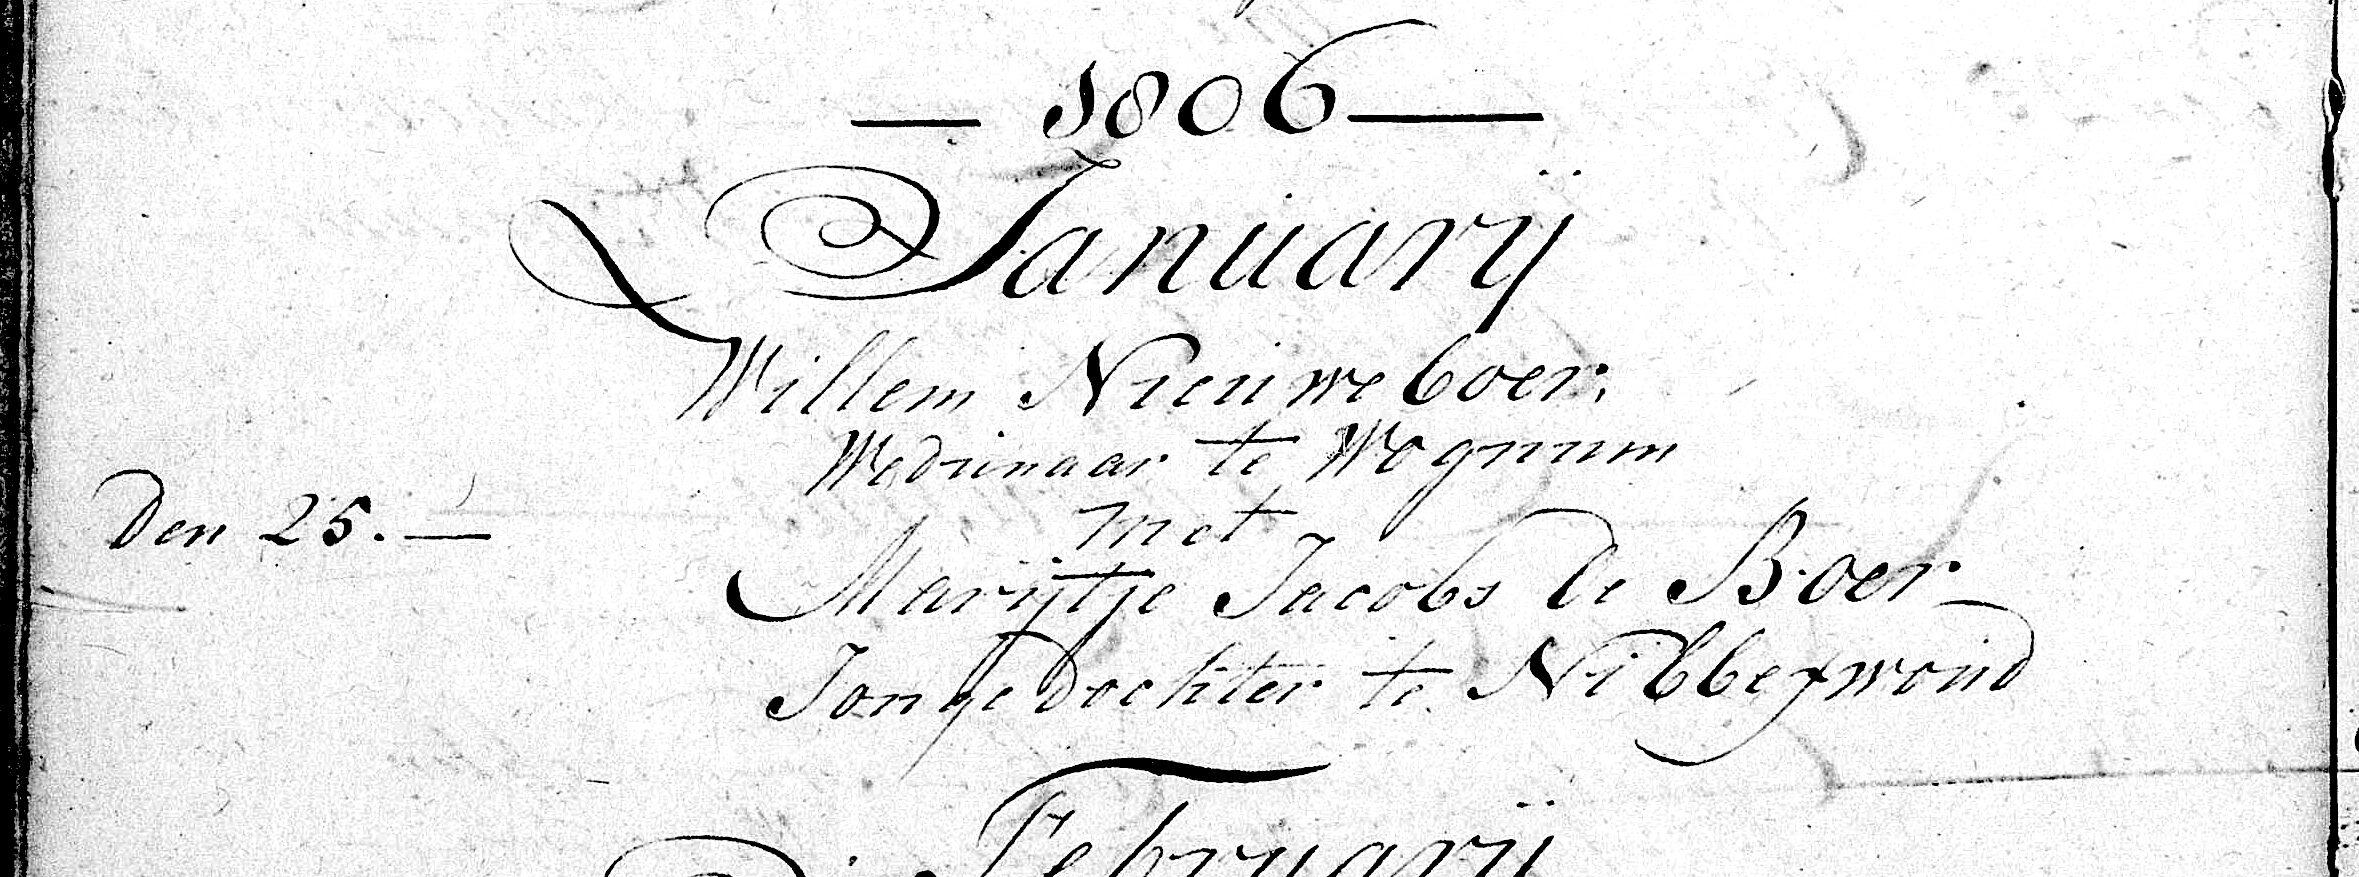 — 1806 —
Januarij
Willem Nieuweboer,
Wedunaar te Wognum
Den 25. —
met
Marijtje Jacobs de Boer
Jonge Dochter te Nibbexwoud
Februarij